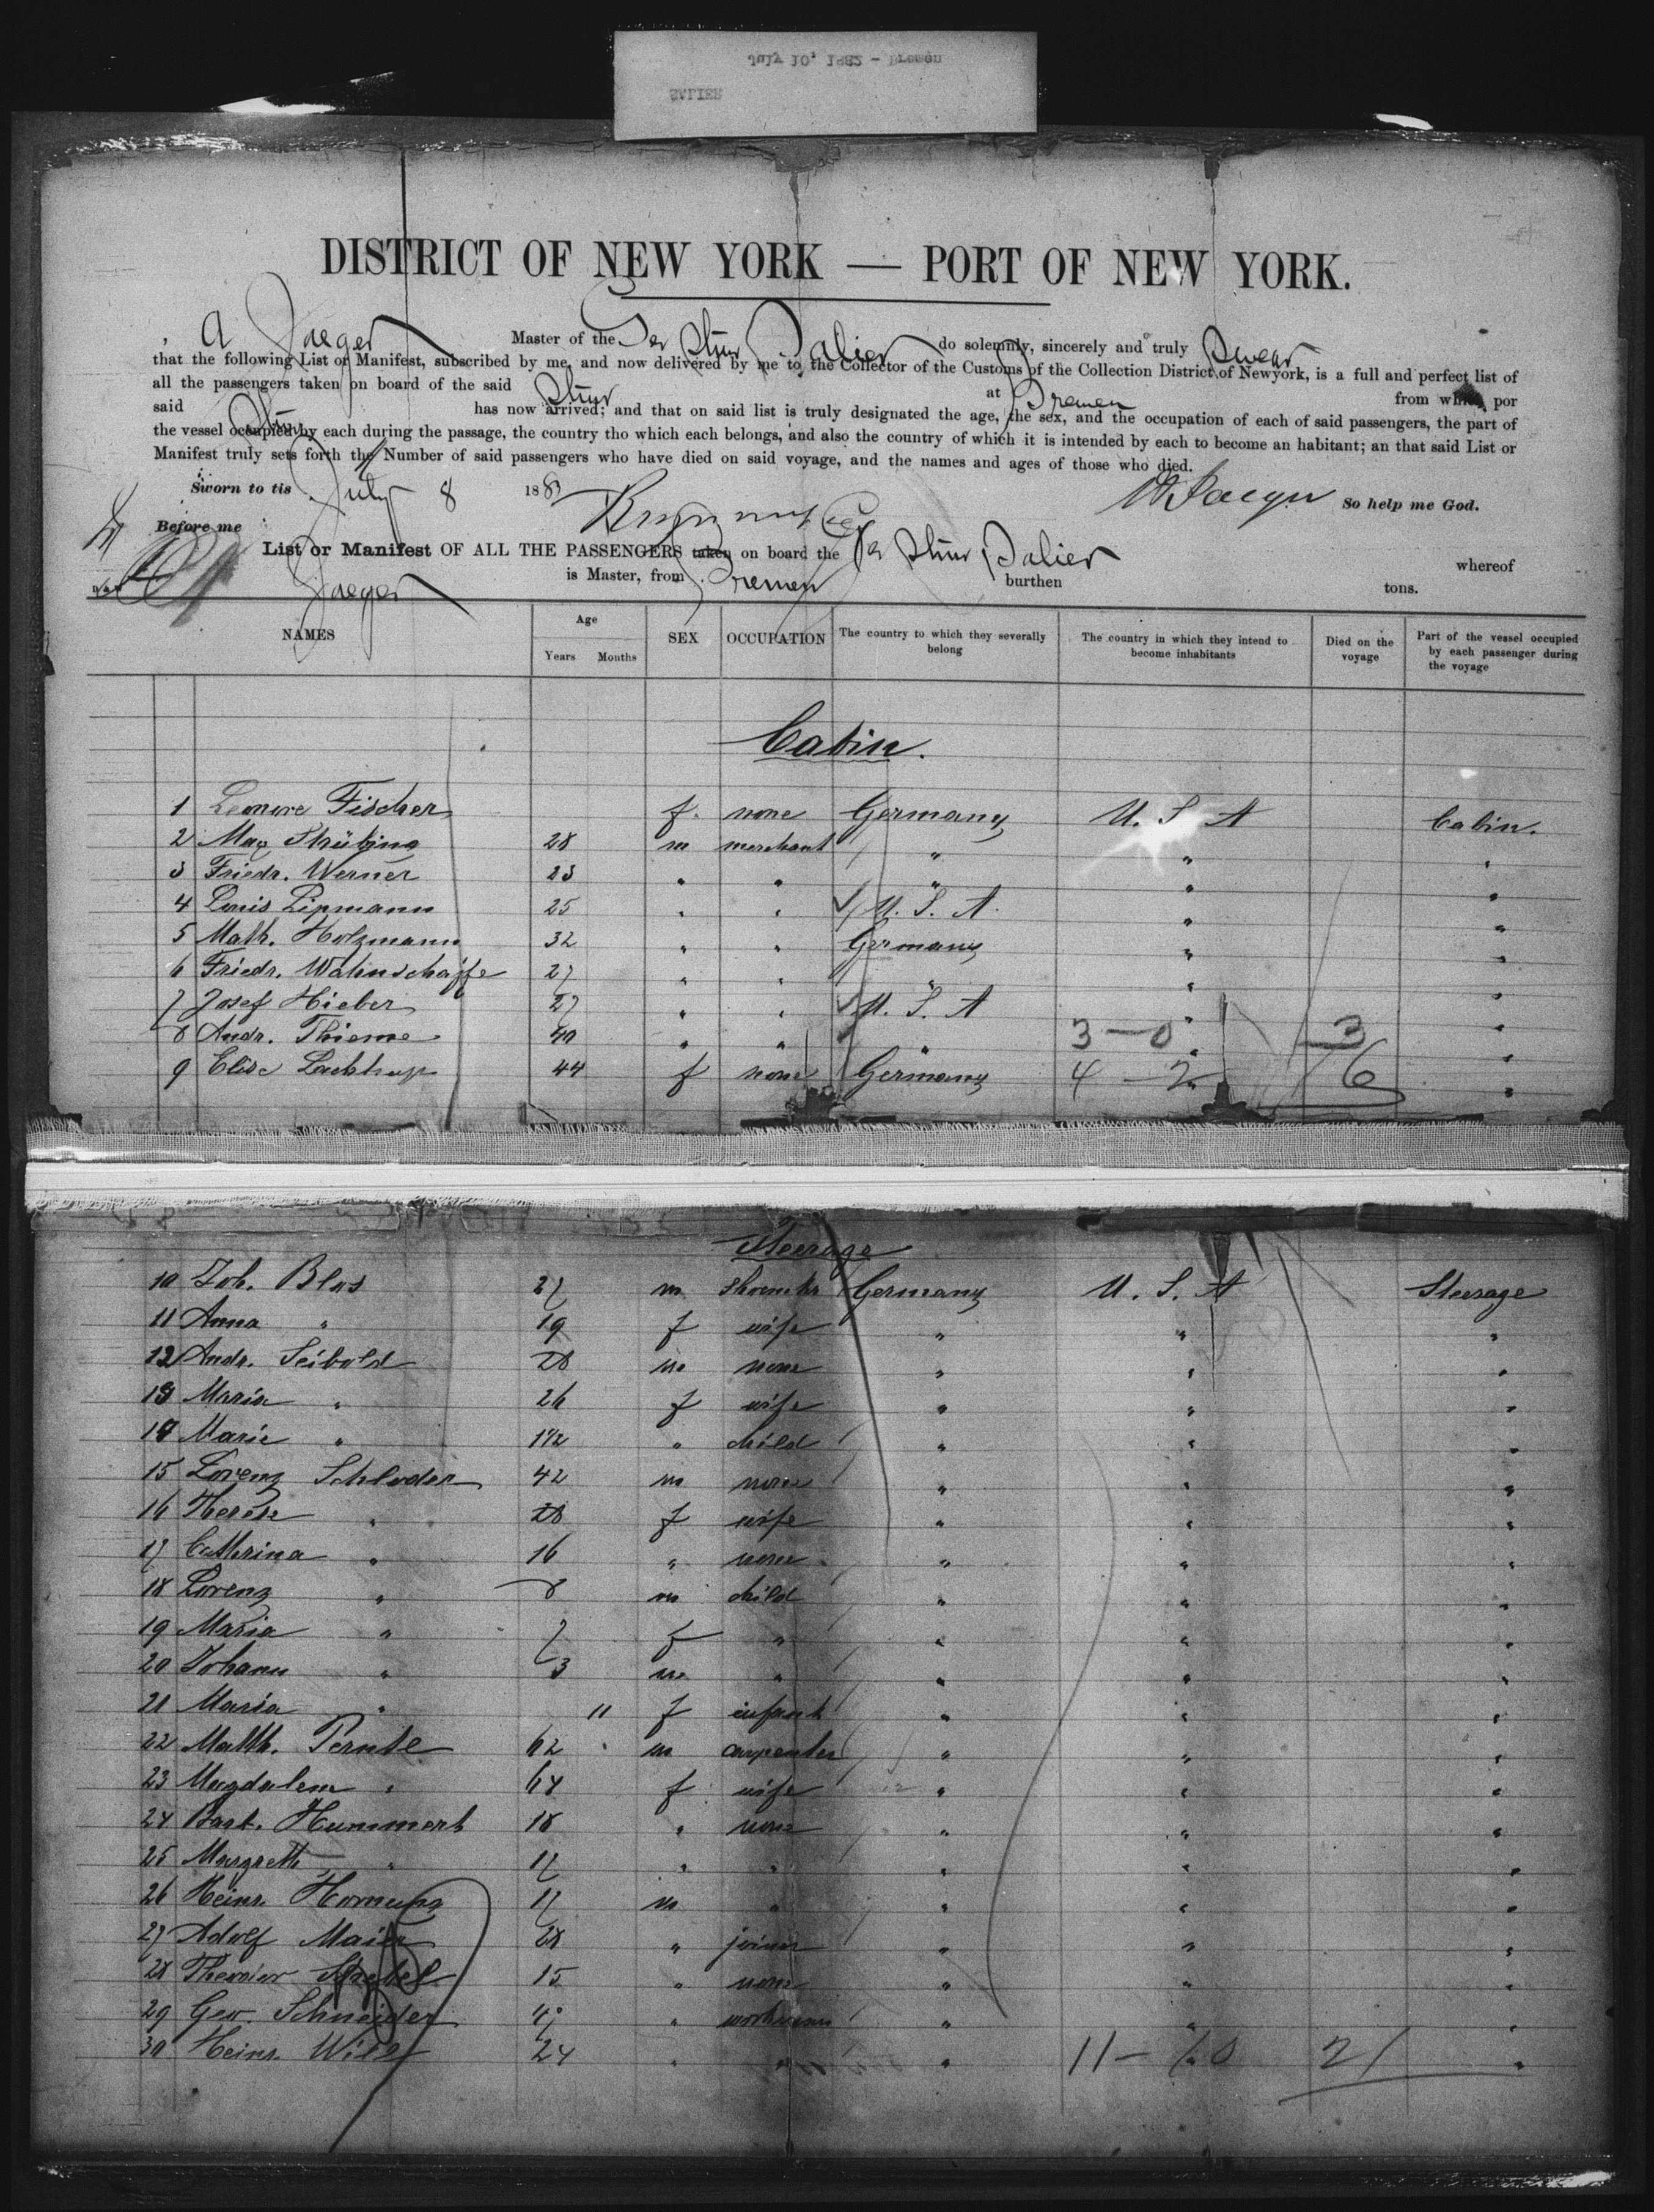 July 10, 1882 - Bremen
SALIER
DISTRICT OF NEW YORK — PORT OF NEW YORK.
A Jaeger Master of the Ger Stmr Salier do solemnly, sincerely and truly swear
that the following List or Manifest, subscribed by me, and now delivered by me to the Collector of the Customs of the Collection District of Newyork, is a full and perfect list of
all the passengers taken on board of the said Stmr at Bremen from which por
said Stmr has now arrived; and that on said list is truly designated the age, the sex, and the occupation of each of said passengers, the part of
the vessel occupied by each during the passage, the country tho which each belongs, and also the country of which it is intended by each to become an habitant; an that said List or
Manifest truly sets forth the Number of said passengers who have died on said voyage, and the names and ages of those who died.
Sworn to tis July 8 188 Jaeger So help me God.
Before me
List or Manifest OF ALL THE PASSENGERS taken on board the Ger Stmr Salier whereof
Jaeger is Master, from Bremen burthen tons.
NAMES Age Years Months SEX OCCUPATION The country to which they severally belong The country in which they intend to become inhabitants Died on the voyage Part of the vessel occupied by each passenger during the voyage
Cabin.
1 Leonore Fischer f. none Germany U. S. A Cabin.
2 Max Strübing 28 m merchant " " "
3 Friedr. Werner 23 " " " " "
4 Louis Lipmann 25 " " U. S. A. " "
5 Math. Holzmann 32 " " Germany " "
6 Friedr. Wahnschaffe 27 " " " " "
7 Josef Hieber 27 " " U. S. A " "
8 Andr. Thieme 40 " " " 3-0 " 3 "
9 Elise 44 f none Germany 4-2 " 6 "
Steerage
10 Joh. Blos 27 m shoemkr Germany U. S. A Steerage
11 Anna " 19 f wife " " "
12 Andr. Seibold 28 m none " " "
13 Maria " 26 f wife " " "
14 Marie " 1½ " child " " "
15 Lorenz Schloder 42 m none " " "
16 Therese " 28 f wife " " "
17 Catherina " 16 " none " " "
18 Lorenz " 8 m child " " "
19 Maria " 7 f " " " "
20 Johann " 3 m " " " "
21 Maria " 11 f infant " " "
22 Matth. Pernte 62 m carpenter " " "
23 Magdalena " 64 f wife " " "
24 Barb. Hummert 18 " none " " "
25 Margreth " 17 " " " " "
26 Heinr. Hornung 17 m " " " "
27 Adolf Maier 28 " joiner " " "
28 Theodor 15 " none " " "
29 Geo. Schneider 47 " workman " " "
30 Heinr. Will 24 " " " 11-10 21 "